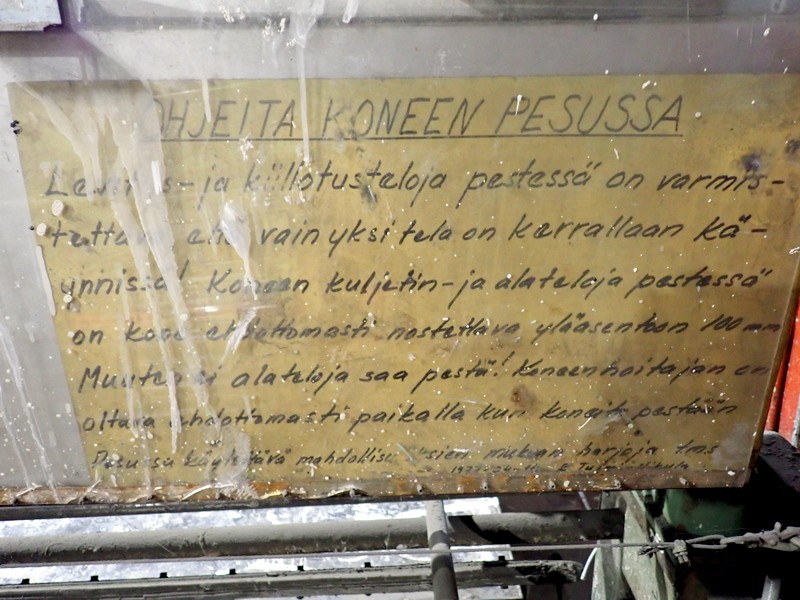 OHJEITA KONEEN PESUSSA
Levitys- ja kiillotusteloja pestessä on varmis-
tettava että vain yksi tela on kerrallaan kä-
ynnissä! Koneen kuljetin- ja alateloja pestessä
on kone ehdottomasti nostettava yläasentoon 100 mm
Muuten ei alateloja saa pestä! Koneenhoitajan on
oltava ehdottomasti paikalla kun koneita pestään
Pesussa käytettävä mahdollisuuksien mukaan harjoja tms